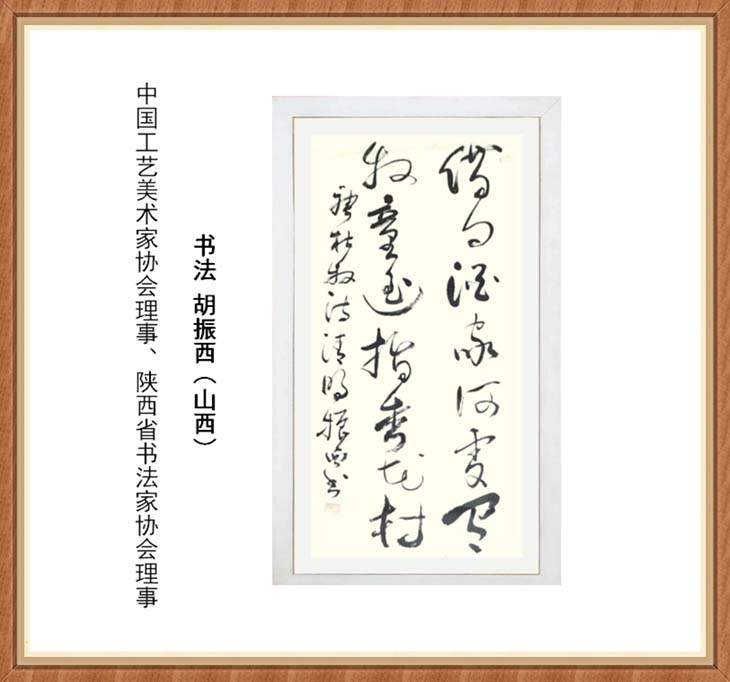 借问酒家何处有
牧童遥指杏花村
唐杜牧诗清明振西书
书法 胡振西（山西）
中国工艺美术家协会理事、陕西省书法家协会理事